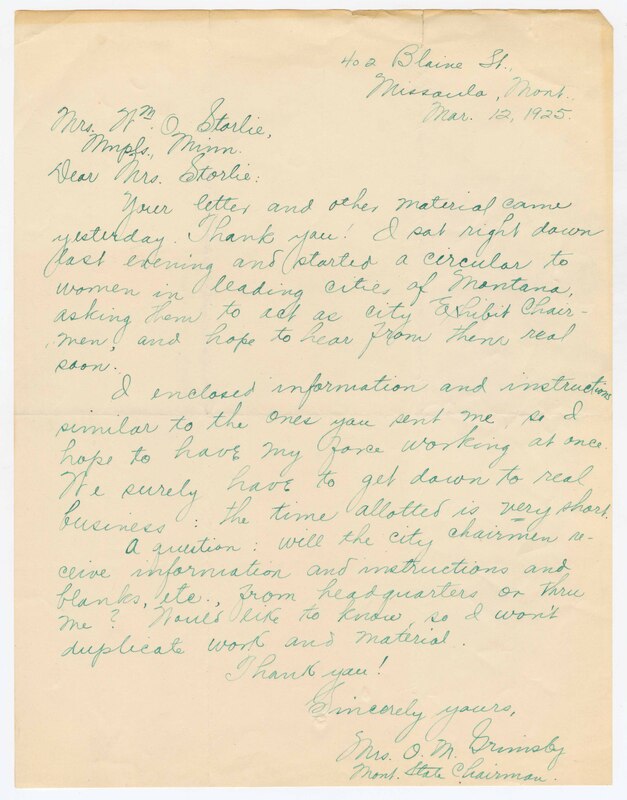 402 Blaine St.,
Missoula, Mont.
Mar. 12, 1925.
Mrs. Wm. O. Storlie,
Mnpls., Minn.
Dear Mrs. Storlie:
Your letter and other material came
yesterday. Thank you! I sat right down
last evening and started a circular to
women in leading cities of Montana,
asking them to act as city Exhibit Chair-
men, and hope to hear from them real
soon.
I enclosed information and instructions
similar to the ones you sent me, so I
hope to have my force working at once.
We surely have to get down to real
business: the time allotted is very short.
A question: will the city chairmen re-
ceive information and instructions and
blanks, etc., from headquarters or thru
me? Would like to know, so I won't
duplicate work and material.
Thank you!
Sincerely yours,
Mrs. O. M. Grimsby
Mont. State Chairman.